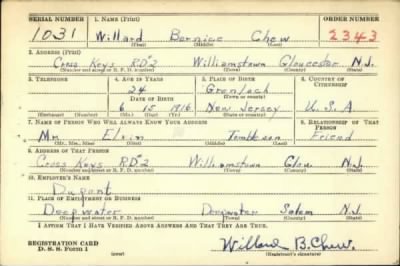 SERIAL NUMBER 1. NAME (Print) ORDER NUMBER
1031 Willard Bernice Chew 2343
(First) (Middle) (Last)
2. ADDRESS (Print)
Cross Keys RD2 Williamstown Gloucester N.J.
(Number and street or R. F. D. number) (Town) (County) (State)
3. TELEPHONE 4. AGE IN YEARS 5. PLACE OF BIRTH 6. COUNTRY OF CITIZENSHIP
24 Grenloch
DATE OF BIRTH (Town or county)
6 15 1916 New Jersey U.S.A
(Exchange) (Number) (Mo.) (Day) (Yr.) (State or country)
7. NAME OF PERSON WHO WILL ALWAYS KNOW YOUR ADDRESS 8. RELATIONSHIP OF THAT PERSON
Mr. Elvin Tomlinson Friend
(Mr., Mrs., Miss) (First) (Middle) (Last)
9. ADDRESS OF THAT PERSON
Cross Keys RD2 Williamstown Glou. N.J.
(Number and street or R. F. D. number) (Town) (County) (State)
10. EMPLOYER'S NAME
Dupont
11. PLACE OF EMPLOYMENT OR BUSINESS
Deepwater Deepwater Salem N.J.
(Number and street or R. F. D. number) (Town) (County) (State)
I AFFIRM THAT I HAVE VERIFIED ABOVE ANSWERS AND THAT THEY ARE TRUE.
REGISTRATION CARD
D. S. S. Form 1 (over) Willard B. Chew.
(Registrant's signature)